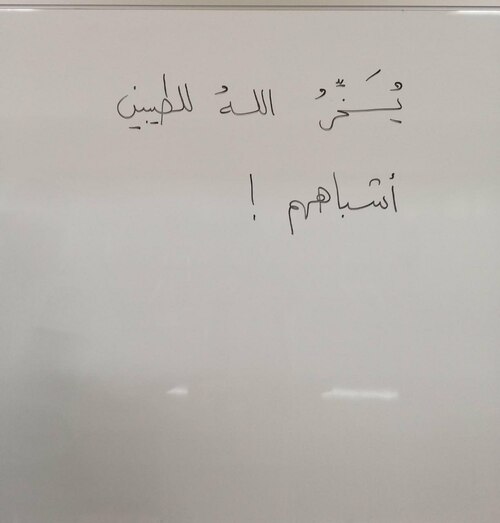 يُسَخِّرُ اللهُ للطيبين
أشباههم !